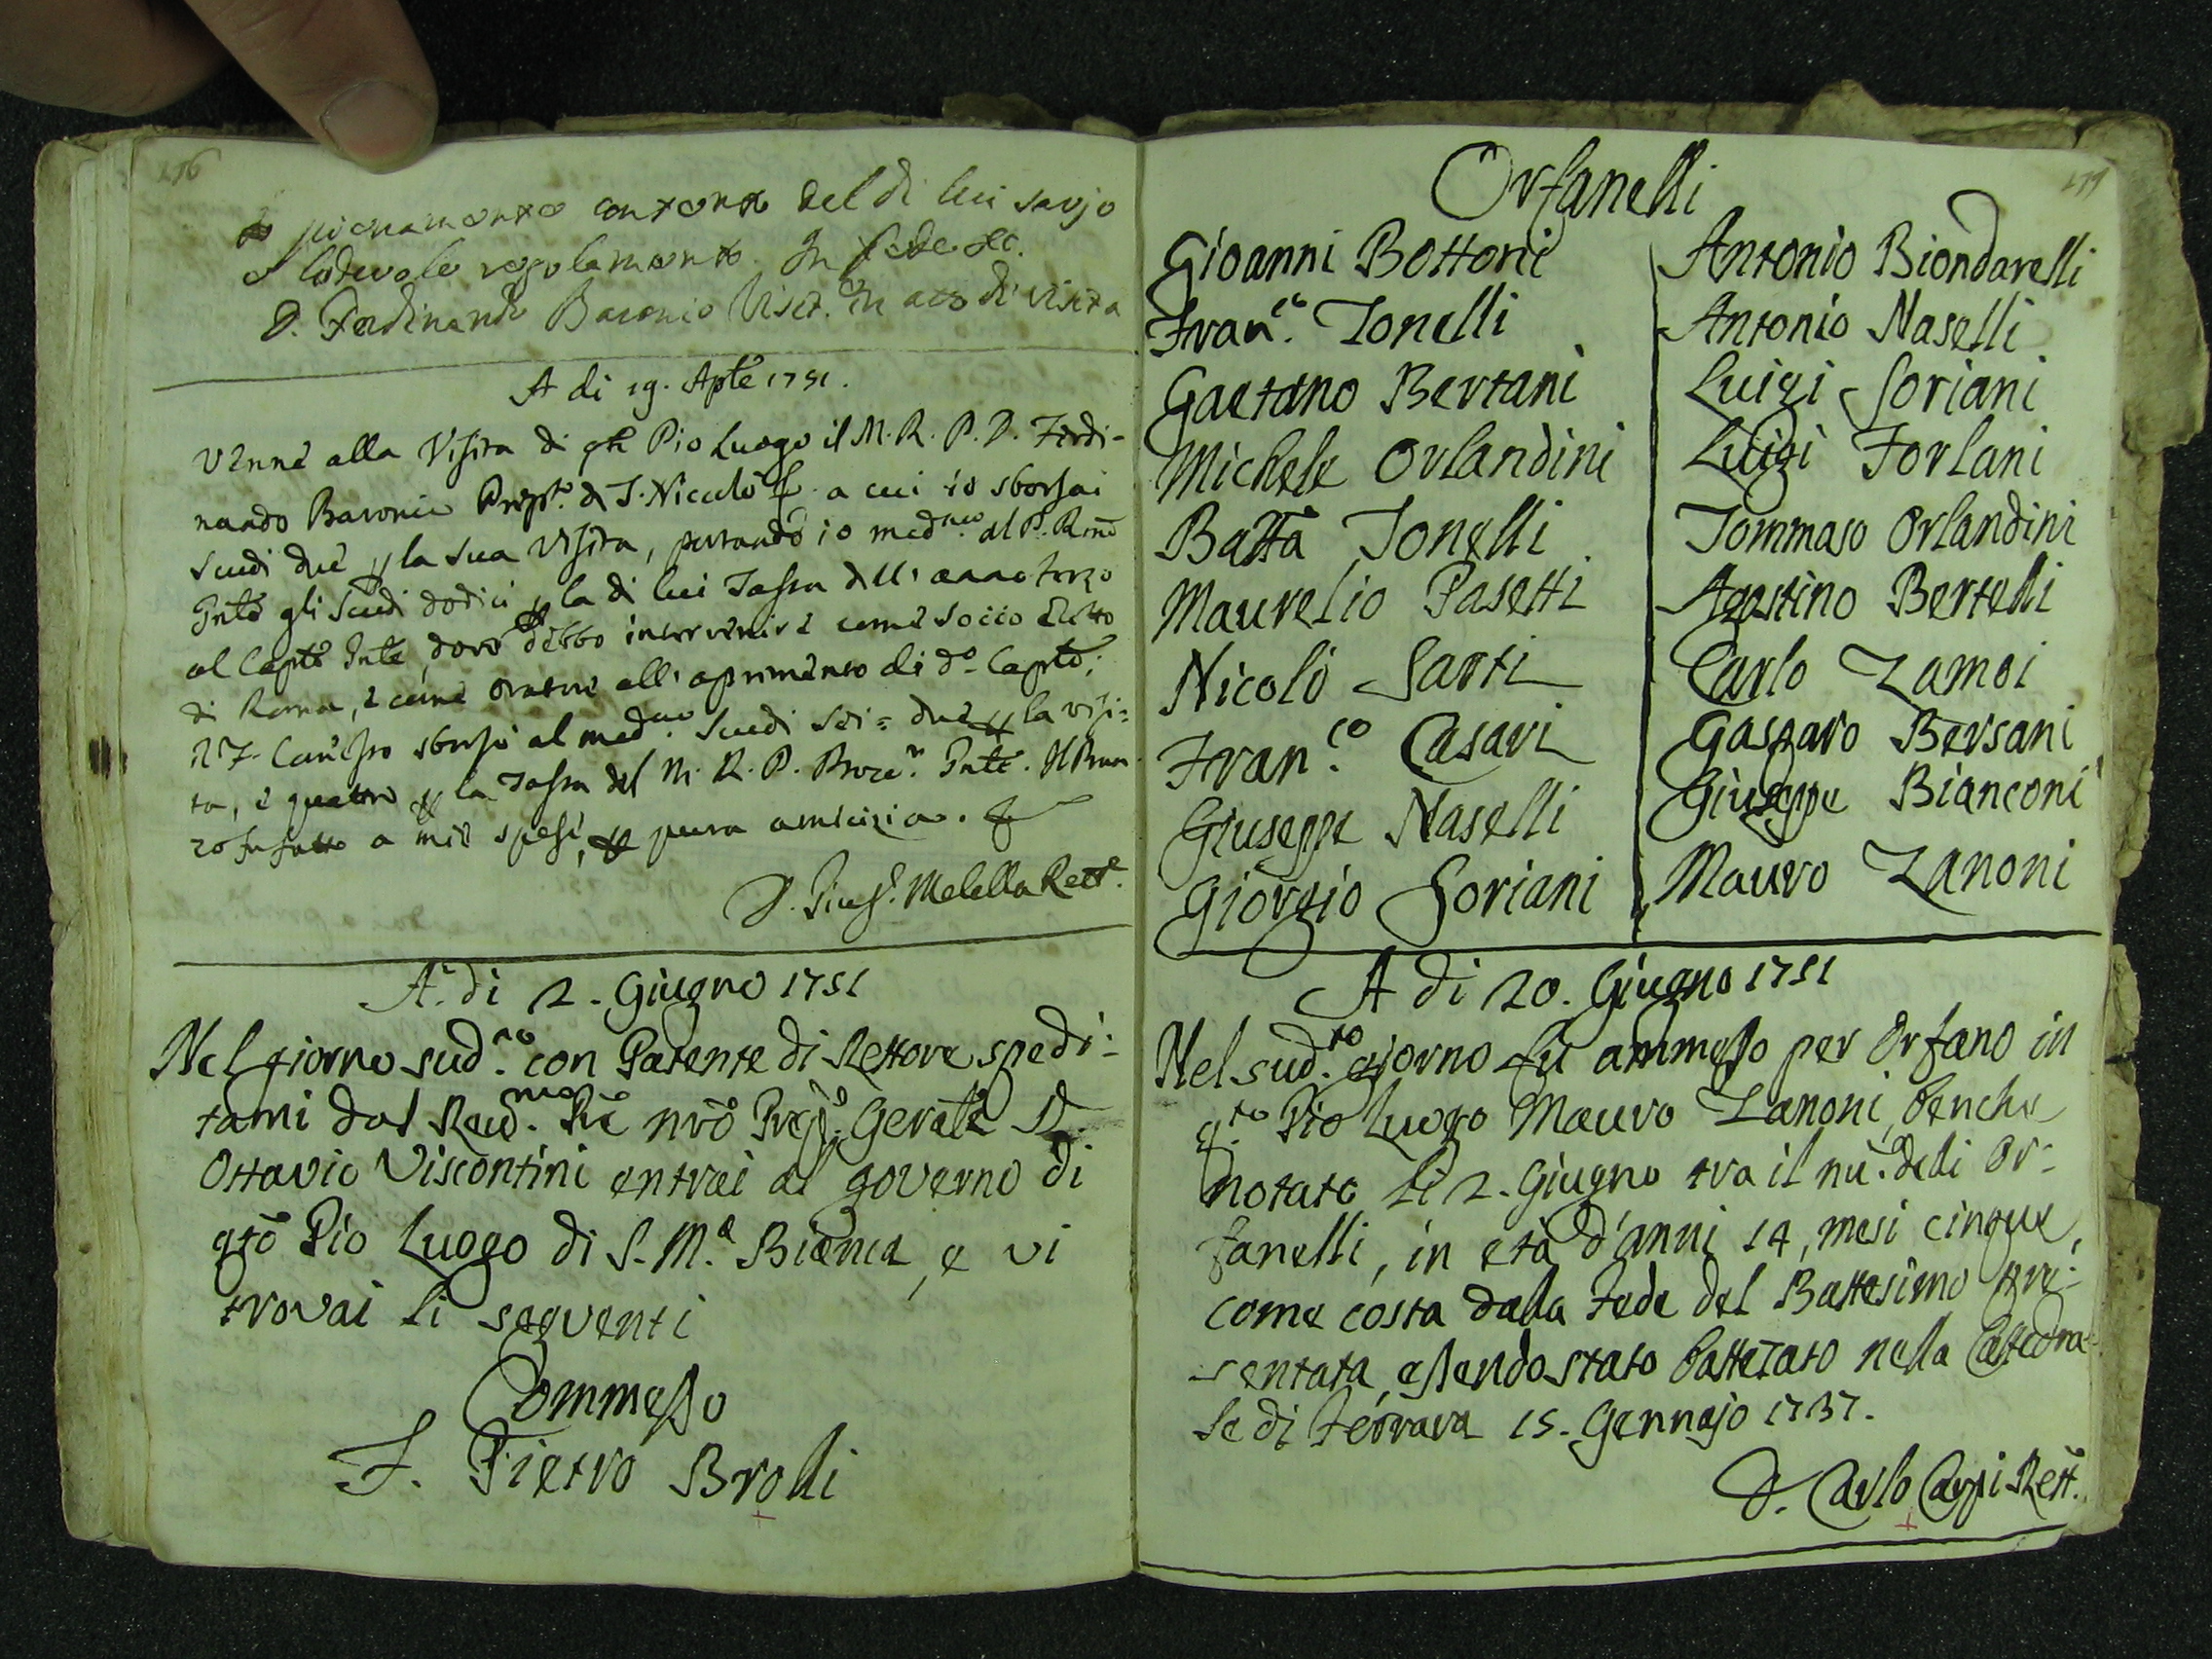 176
pienamente contento del di lui savjo
e lodevole regolamento. In fede &c.
D. Ferdinando Baronio Visit.e in atto di visita
A di 19. Aplē 1751.
Venne alla Visita di qto Pio Luogo il M. R. P. D. Ferdi-
nando Baronio Prepto. di S. Nicolò a cui io sborsai
scudi due la sua Visita, portando io medmo. al P. Rmō
gli Scudi dodici la di lui Tassa dell' anno terzo
al Capto dove debbo intervenire come Socio eletto
di Roma, e come Oratore all' aprimento di do. Capto:
sborsò al medmo. Scudi sei = due la visi=
ta, e quattro la Tassa del M. R. P.
zo fu fatto a mie spese, pura amicizia.
D. Gius. Melella Rett.e
A. di 2. Giugno 1751
Nel giorno sud.to con Patente di Rettore spedi:
tami dal Revd.mo Prē nrō Prep.o Geralē D.
Ottavio Viscontini entrai al governo di
qtō Pio Luogo di S. M.a Bianca, e vi
trovai li seguenti
Commesso
F. Pietro Brolli
177
Orfanelli
Gioanni Bottoni
Fran.co Tonelli
Gaetano Bertani
Michele Orlandini
Battā Tonelli
Maurelio Pasetti
Nicolò Sarti
Fran.co Casari
Giuseppe Naselli
Giorgio Soriani
Antonio Biondarelli
Antonio Naselli
Luigi Soriani
Luigi Forlani
Tommaso Orlandini
Agostino Bertelli
Carlo Zamoi
Gasparo Bersani
Giuseppe Bianconi
Mauro Zanoni
A di 20. Giugno 1751
Nel sud.to giorno fu ammesso per Orfano in
q.to Pio Luogo Mauro Zanoni, benche
notato li 2. Giugno tra il nū. delli Or-
fanelli, in età d'anni 14, mesi cinque,
come costa dalla Fede del Battesimo pre:
sentata, essendo stato battezato nella Catedra-
le di Ferrara 15. Gennajo 1737.
D. Carlo Carpi Rett.e